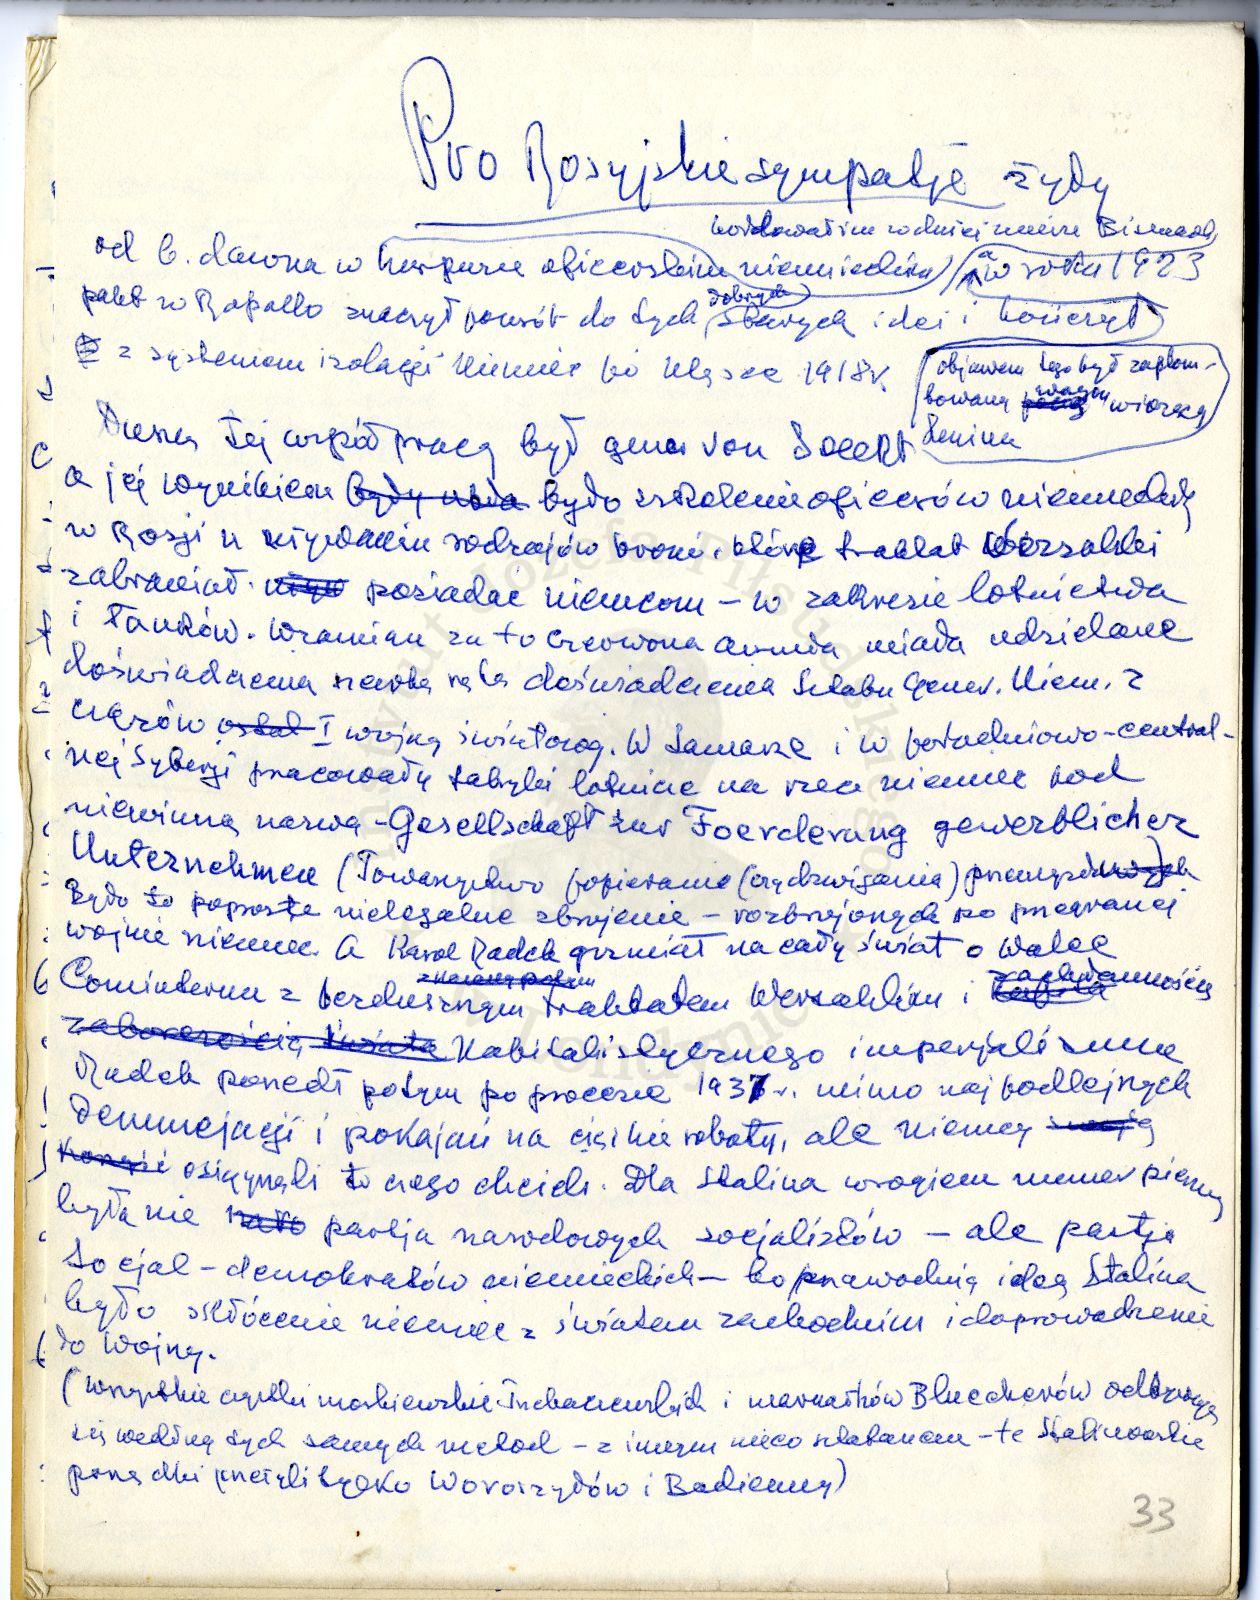 Pro Rosyjskie sympatje żyły
hołdował im w dniej mierze Bismarck
od b. dawna w korpusie oficerskim niemieckim a w roku 1923
pakt w Rapallo znaczył powrót do tych dobrych starych idei i kończył
z systemem izolacji Niemiec po klęsce 1918 r.
objawem tego był zaplom-
bowany wagon wiozący
Lenina
Duszą tej współpracy był gener von Seeckt
a jej wynikiem było szkolenie oficerów niemieckich
w Rosji w używaniu rodzajów broni, które traktat Wersalski
zabraniał posiadać niemcom – w zakresie lotnictwa
i tanków. Wzamian za to czerwona armia miała udzielane
doświadczenia doświadczenia Sztabu Gener. Niem. z
czasów I wojny światowej. W Samarze i w południowo-central-
nej Syberji pracowały fabryki lotnicze na rzecz niemiec pod
niewinną nazwą – Gesellschaft zur Foerderung gewerblicher
Unternehmen (Towarzystwo popierania (czy dzwigania) przemysłu)
Było to poprostu nielegalne zbrojenie – rozbrojonych po przegranej
wojnie niemiec. A Karol Radek grzmiał na cały świat o walce
Cominternu z bezdusznym traktatem Wersalskim i zachłannością
kapitalistycznego imperjalizmu
Radek poszedł potym po procesie 1937 r. mimo najpodlejszych
denuncjacji i pokajań na ciężkie roboty, ale niemcy
osiągnęli to czego chcieli. Dla Stalina wrogiem numer pierwszy
była nie partja narodowych socjalistów – ale partja
socjal-demokratów niemieckich – bo przewodnią ideą Stalina
było skłócenie niemiec z światem zachodnim i doprowadzenie
do wojny.
(Wszystkie czystki moskiewskie Tuchaczewskich i marszałków Bluecherów odbywają
się według tych samych metod – z innym nieco – te Stalinowskie
porządki przeżyli tylko Woroszyłow i Budienny)
33
Instytut Józefa Piłsudskiego
w Londynie